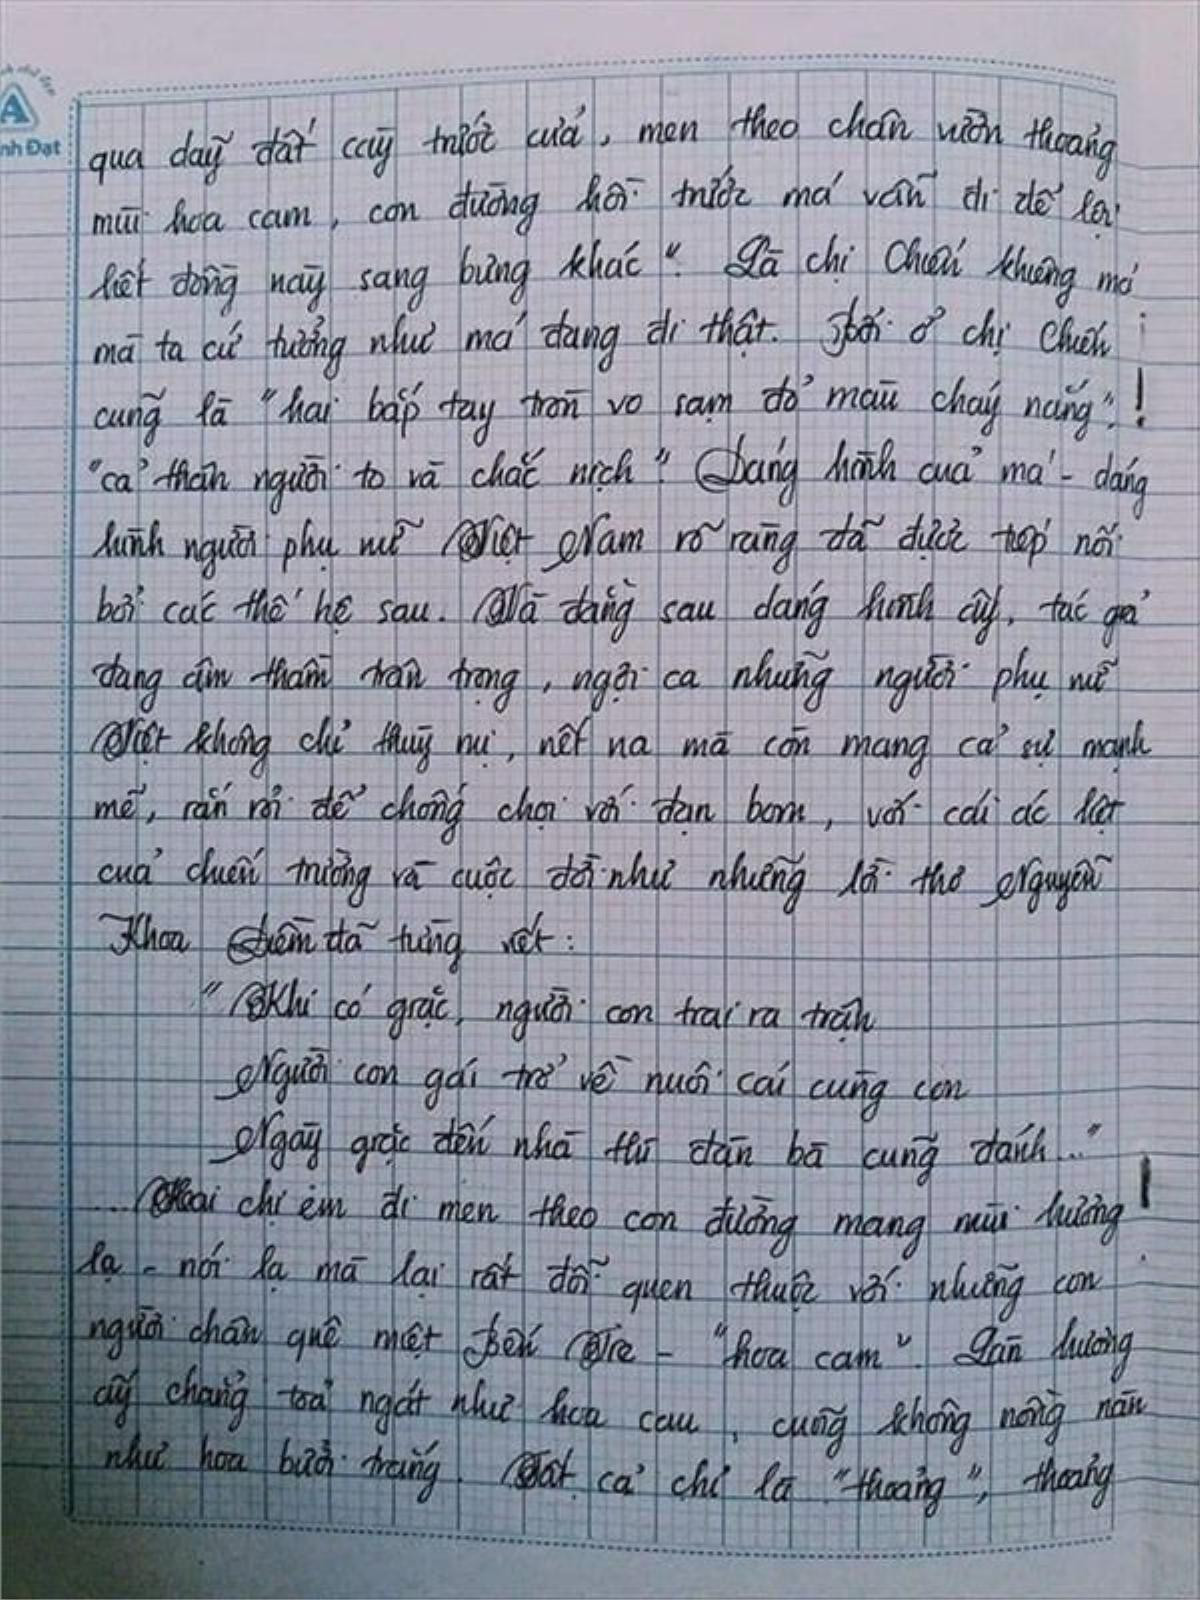 A
nh Đạt
qua dãy đất cày trước cửa, men theo chân vườn thoảng
mùi hoa cam, con đường hồi trước má vẫn đi để lội
hết đồng này sang bưng khác". Là chị Chiến khiêng má
mà ta cứ tưởng như má đang đi thật. Bởi ở chị Chiến
cũng là "hai bắp tay tròn vo sạm đỏ màu cháy nắng",
"cả thân người to và chắc nịch". Dáng hình của má - dáng
hình người phụ nữ Việt Nam rõ ràng đã được tiếp nối
bởi các thế hệ sau. Và đằng sau dáng hình ấy, tác giả
đang âm thầm trân trọng, ngợi ca những người phụ nữ
Việt không chỉ thùy nị, nết na mà còn mang cả sự mạnh
mẽ, rắn rỏi để chống chọi với đạn bom, với cái ác liệt
của chiến trường và cuộc đời như những lời thơ Nguyễn
Khoa Điềm đã từng viết:
"Khi có giặc, người con trai ra trận
Người con gái trở về nuôi cái cùng con
Ngày giặc đến nhà thì đàn bà cũng đánh..."
...Hai chị em đi men theo con đường mang mùi hương
lạ - nói lạ mà lại rất đỗi quen thuộc với những con
người chân quê miệt Bến Tre - "hoa cam". Làn hương
ấy chẳng toả ngát như hoa cau, cũng không nồng nàn
như hoa bưởi trắng. Tất cả chỉ là "thoảng", thoảng